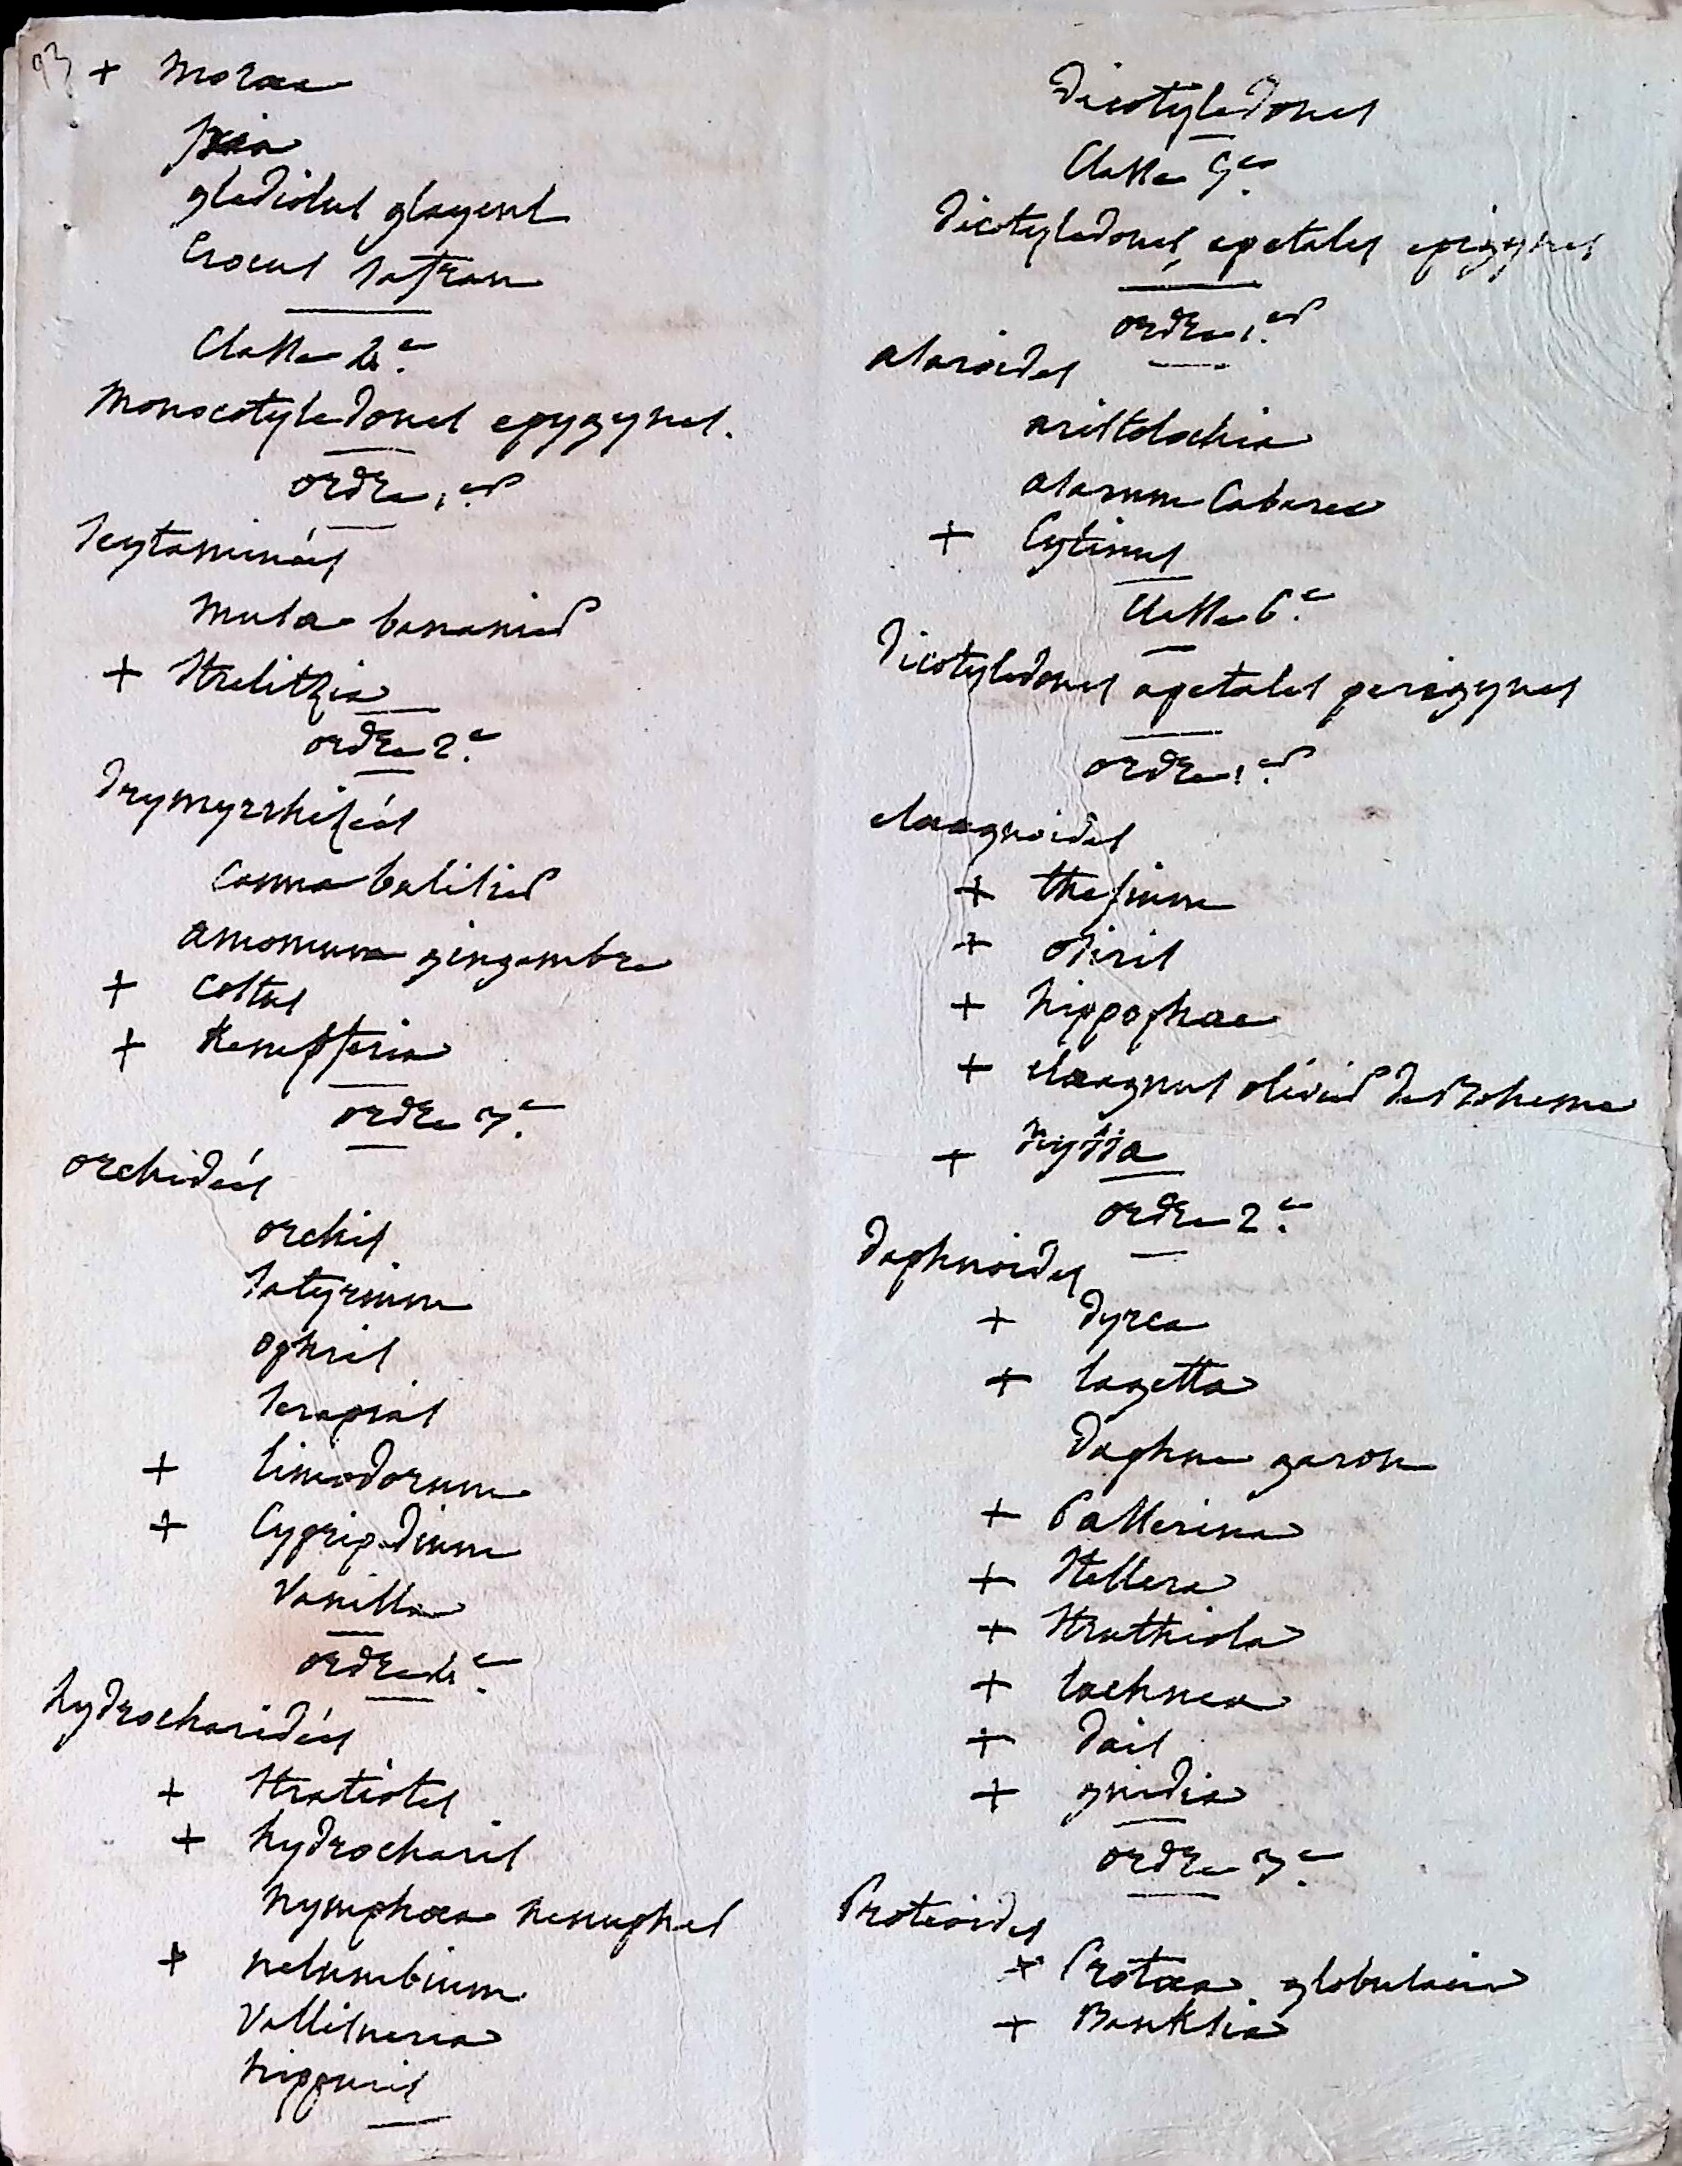 93
+ moræa
ixia
gladiolus glayeul
Crocus safran
Classe 4.e
monocotyledones epygynes.
ordre 1.er
scytaminées
musa bananier
+ strelitzia
ordre 2.e
drymyrrhizées
canna balisier
amomum gingembre
+ costus
+ Kempferia
ordre 3.e
orchidées
orchis
satyrium
ophris
serapias
+ limodorum
+ Cypripedium
vanilla
ordre 4.e
hydrocharidées
+ stratiotes
+ hydrocharis
nymphæa nenuphar
+ nelumbium
vallisneria
hippuris
dicotyledones
Classe 5.e
dicotyledones apetales epigynes
ordre 1.er
asaroides
aristolochia
asarum Cabaret
+ Cytinus
Classe 6.e
dicotyledones apetales perigynes
ordre 1.er
elæagnoides
+ thesium
+ osiris
+ hippophae
+ elæagnus olivier de Boheme
+ nyssa
ordre 2.e
daphnoides
+ dyrca
+ lagetta
daphne garou
+ Passerina
+ stellera
+ struthiola
+ lachnea
+ dais
+ gnidia
ordre 3.e
Proteoides
+ Protæa globulaire
+ Banksia